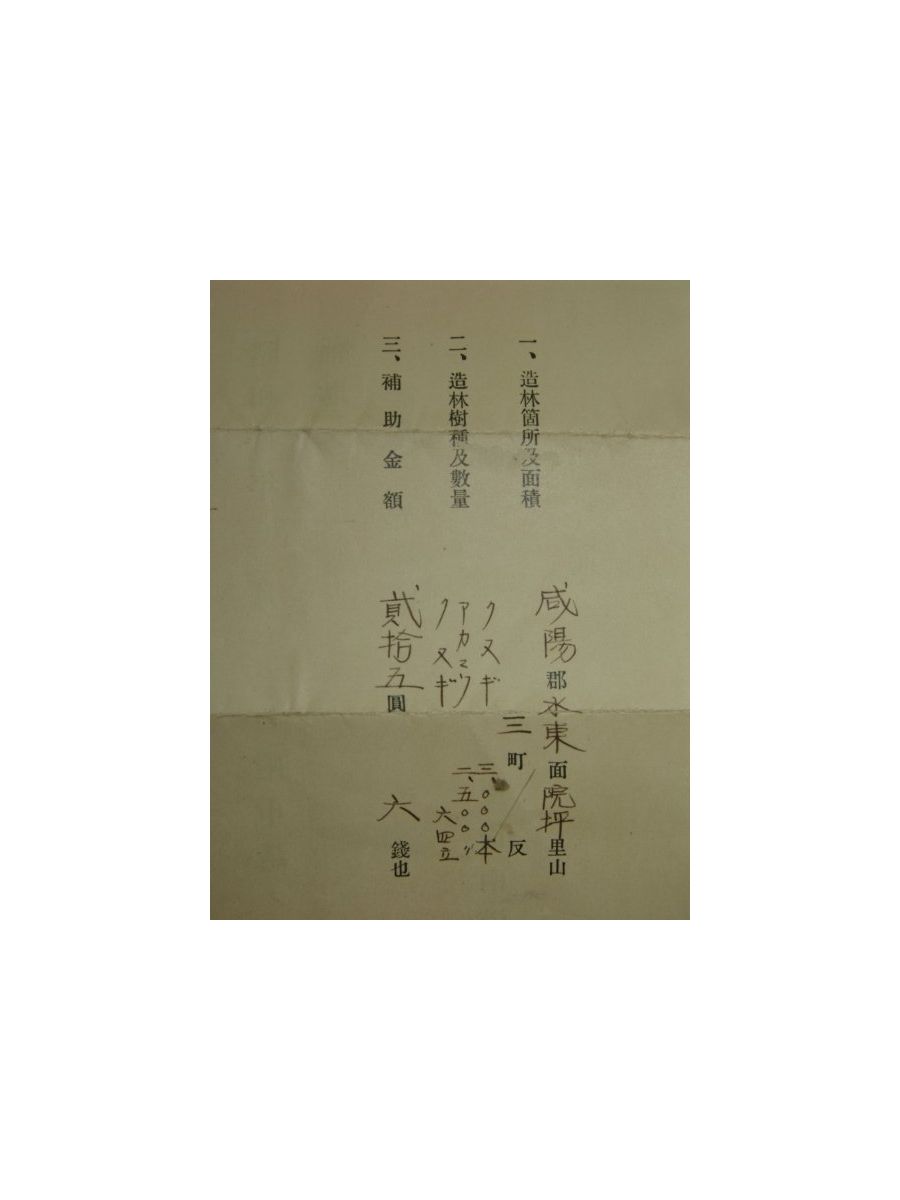 一、造林箇所及面積
咸陽郡水東面院坪里山
三町／反
二、造林樹種及數量
クヌギ 三、〇〇〇本
アカマツ 二、五〇〇〃
クヌギ 六四立
三、補助金額
貳拾五圓 六錢也